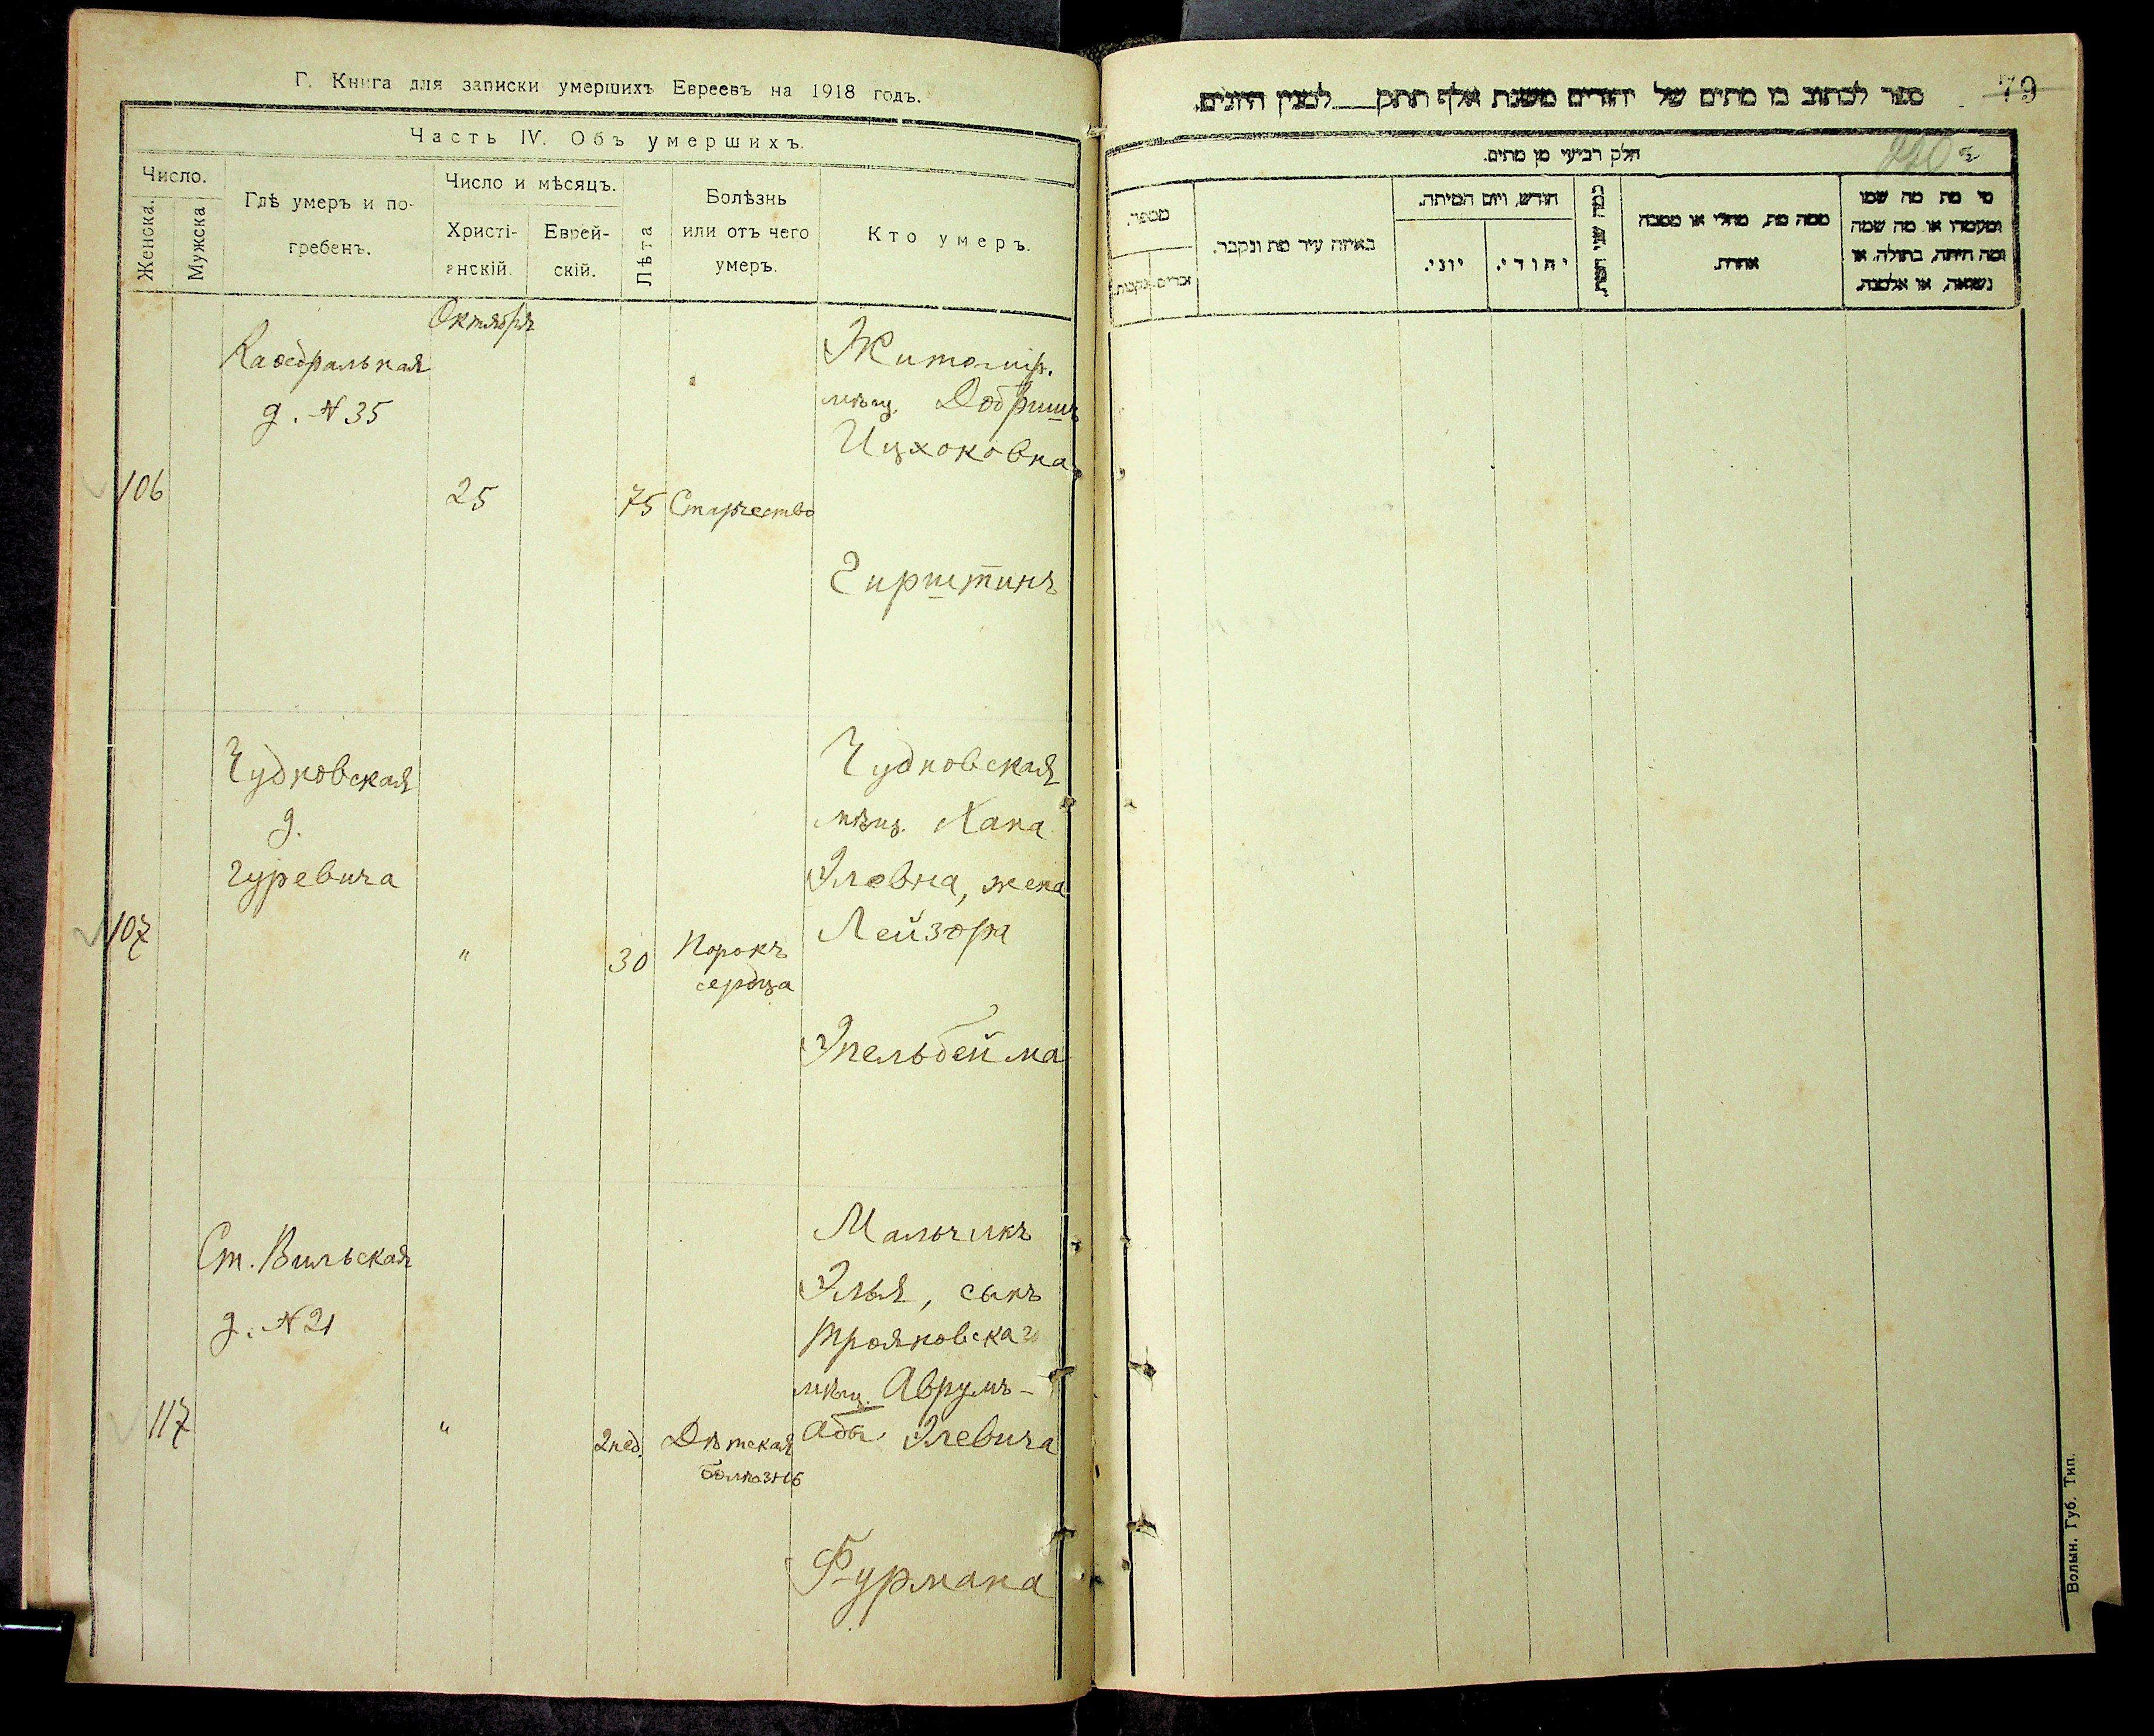 Г. Книга для записки умершихъ Евреевъ на 1918 годъ.
Часть IV. Объ умершихъ.
Число.
Женска.
Мужска
Гдѣ умеръ и по-
гребенъ.
Число и мѣсяцъ.
Христі-
анскій.
Еврей-
скій.
Лѣта
Болѣзнь
или отъ чего
умеръ.
Кто умеръ.
Октября
Каѳедральная
д. № 35
106
25
75
Старчество
Житомир.
мѣщ. Добришъ
Ицхоковна
Гирштинъ
Чудновская
д.
Гуревича
107
"
30
Порокъ
сердца
Чудновская
мѣщ. Хана
Элевна, жена
Лейзора
Эпельбейма
Ст. Вильская
д. № 21
117
"
2 нед.
Дѣтская
болѣзнь
Мальчикъ
Элья, сынъ
трояновскаго
мѣщ. Аврумъ-
Абы Элевича
Фурмана
79
ספר לכתוב בו מתים של יהודים משנת אלף תתק___ למנין היונים.
חלק רביעי מן מתים.
מספר.
נקבות.
זכרים.
באיזה עיר מת ונקבר.
חודש, ויום המיתה.
יוני.
יהודי.
כמה שני המת.
ממה מת, מחלי או מסבה
אחרת.
מי מת מה שמו
ומעמדו או מה שמה
ומה היתה, בתולה, או
נשואה, או אלמנה.
Волын. Губ. Тип.